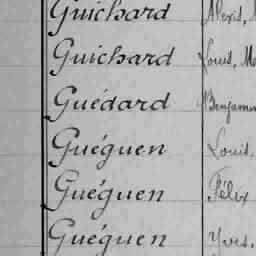 Guichard Alexis,
Guichard Louis, Ma
Guédard Benjamin
Guéguen Louis.
Guéguen Félix
Guéguen Yves,